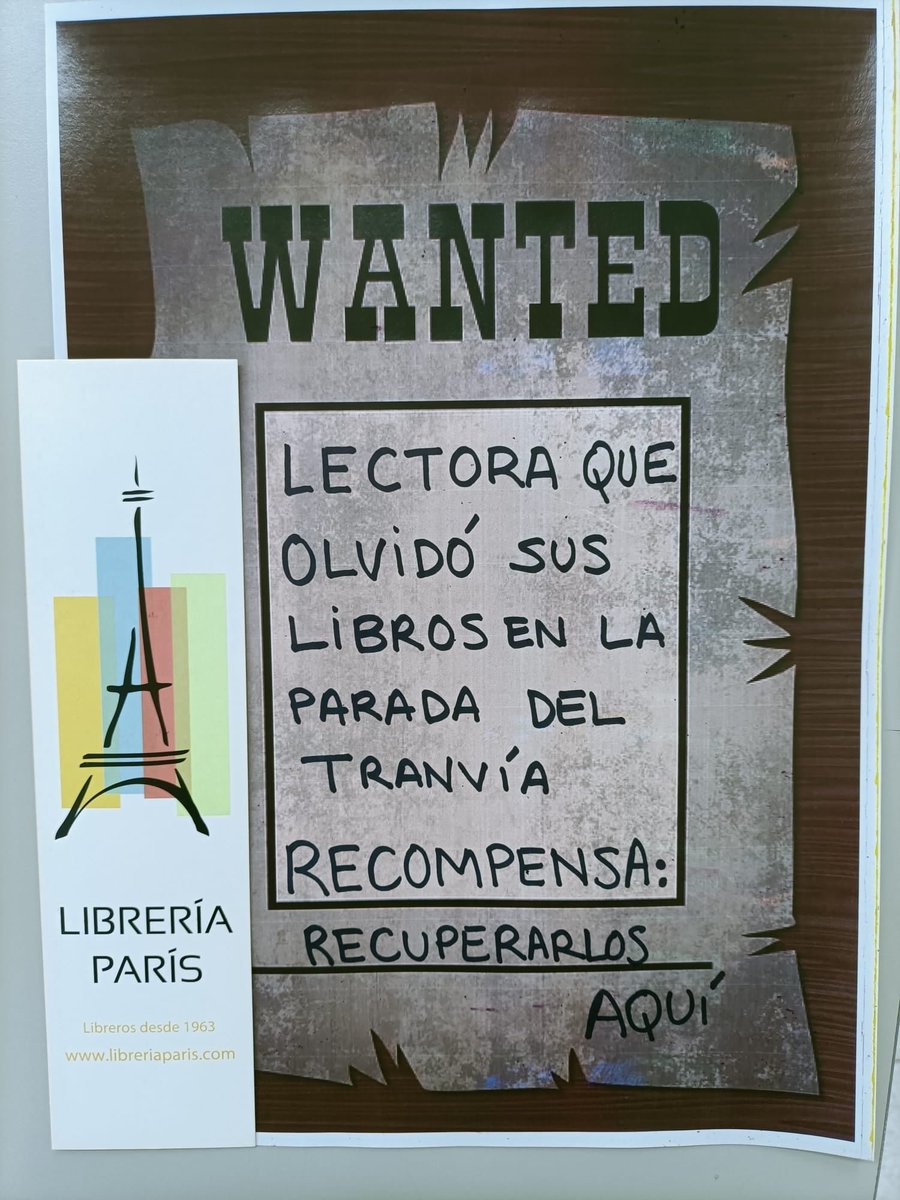 WANTED
LECTORA QUE
OLVIDÓ SUS
LIBROS EN LA
PARADA DEL
TRANVÍA
RECOMPENSA:
RECUPERARLOS
AQUÍ
LIBRERÍA
PARÍS
Libreros desde 1963
www.libreriaparis.com